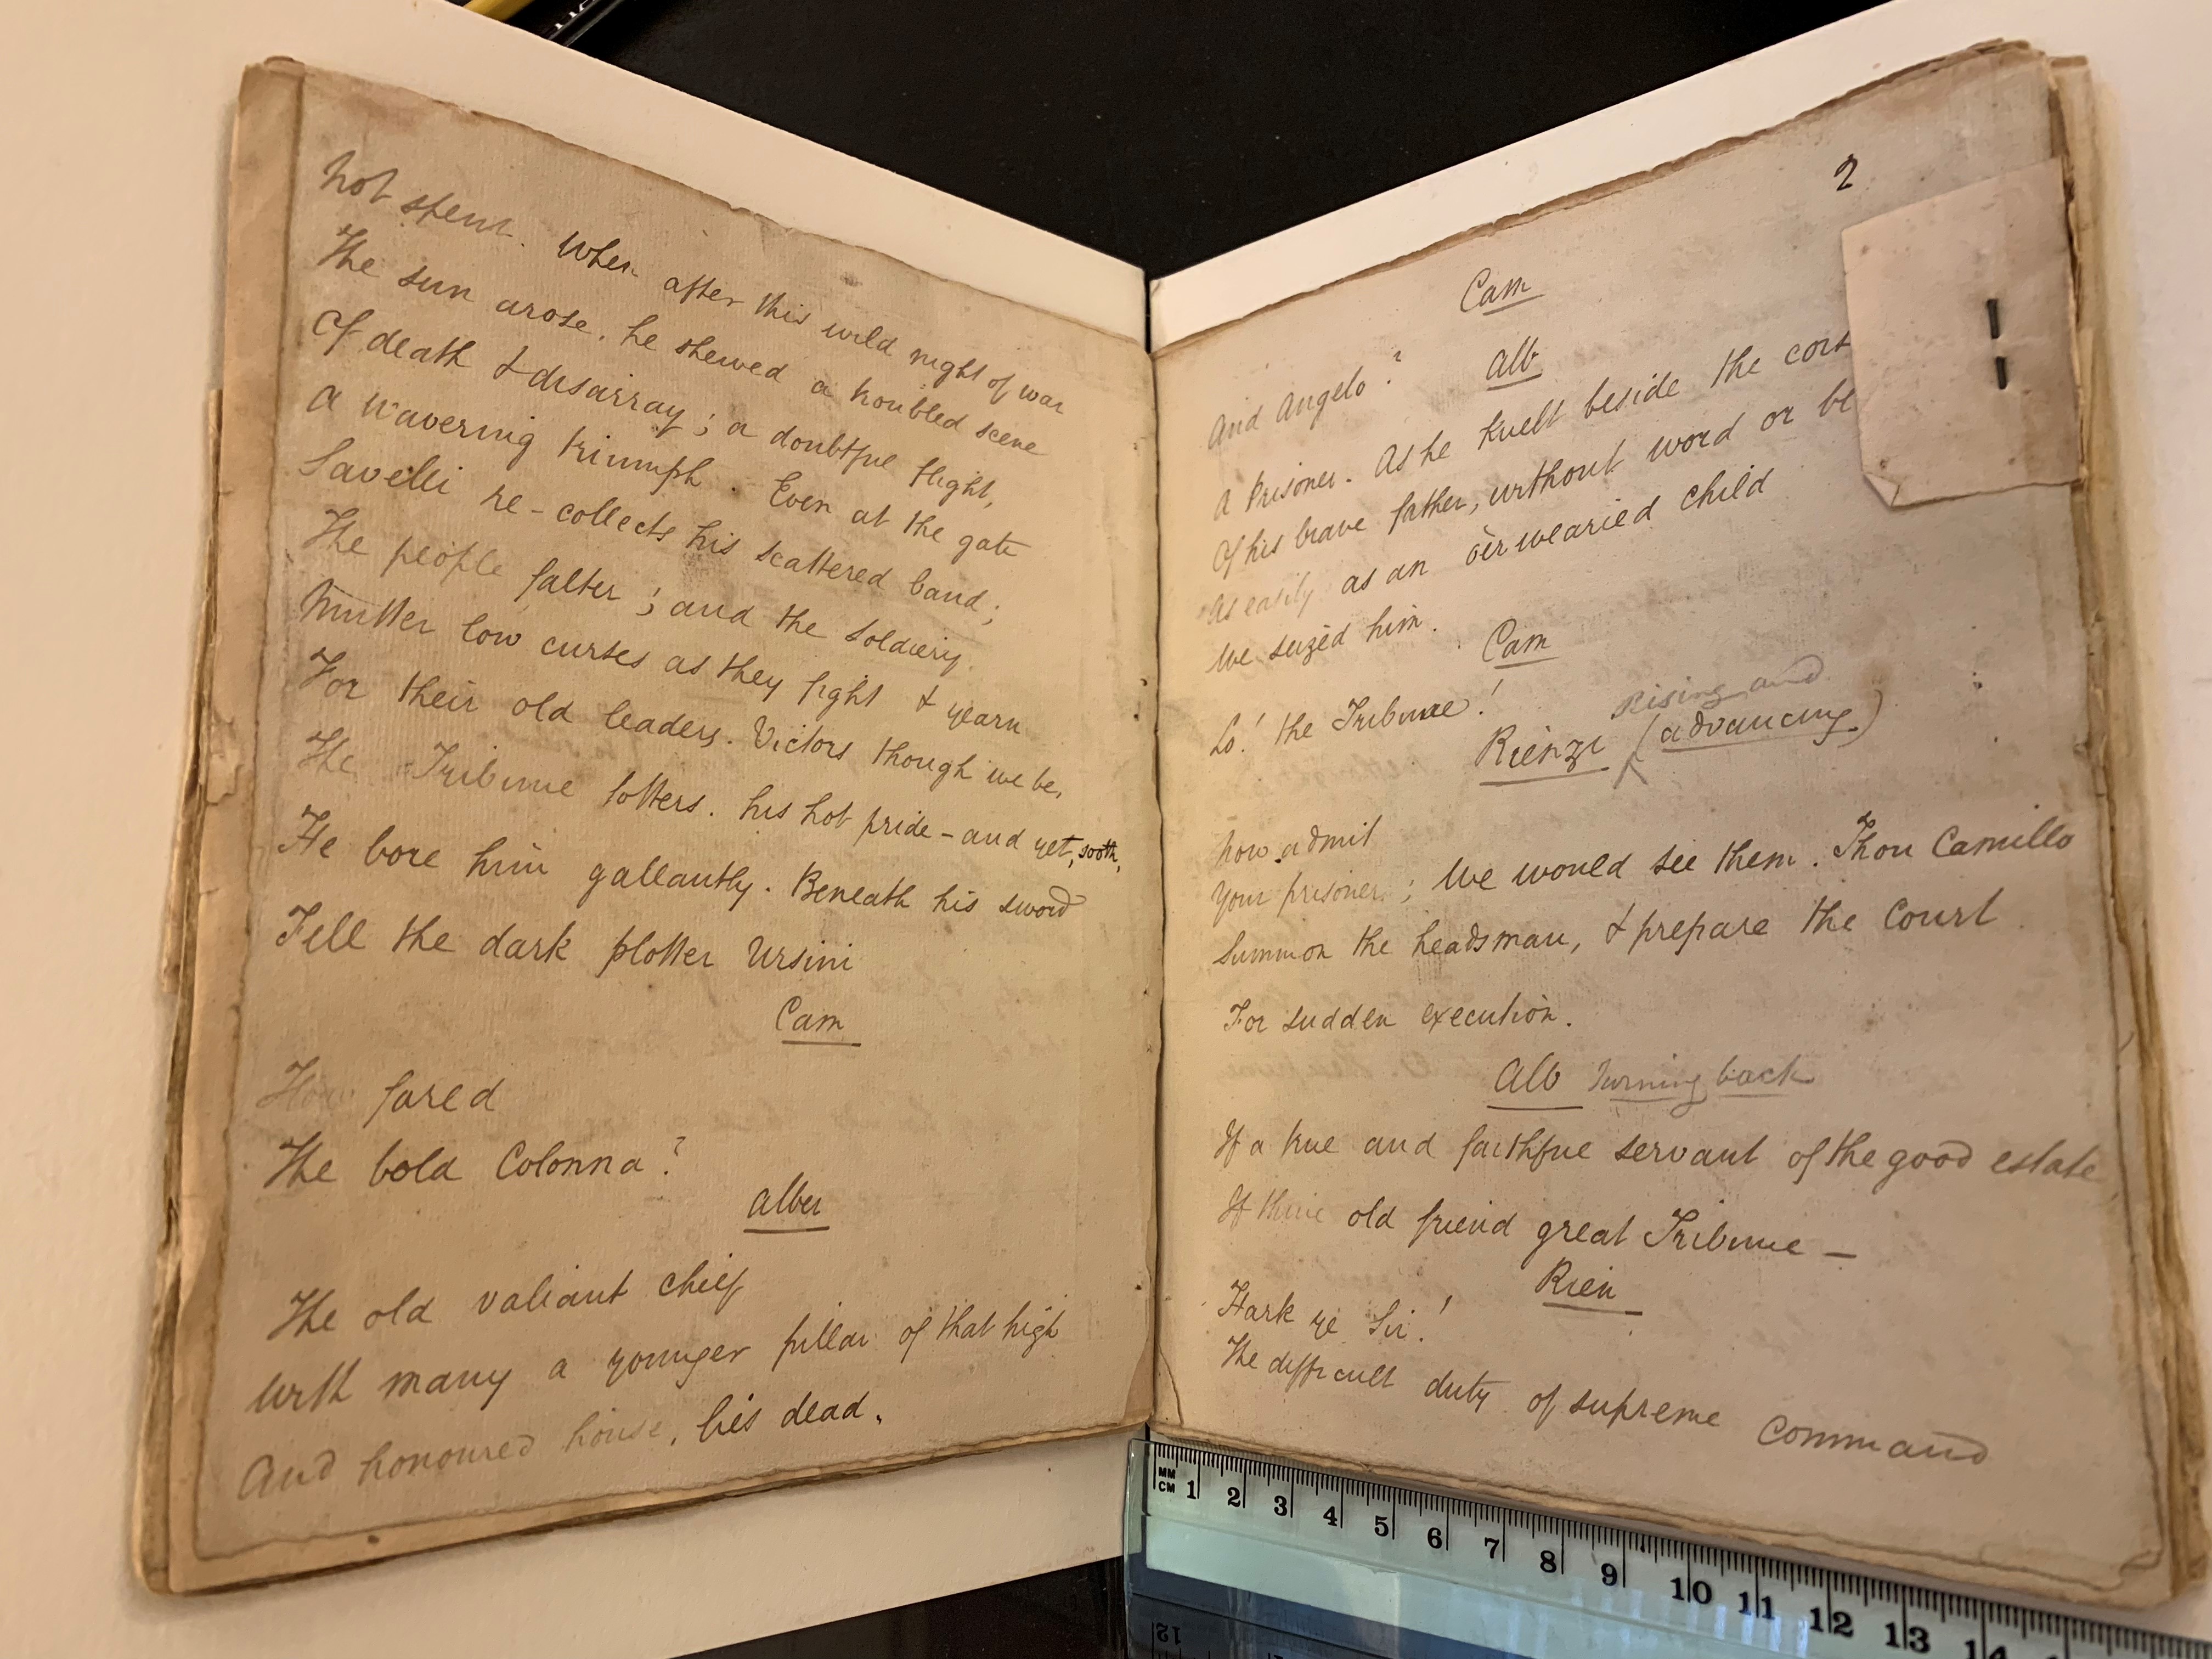 not spent. When after this wild night of war
The sun arose, he shewed a troubled scene
Of death & disarray; a doubtful flight,
A wavering triumph. Even at the gate
Savelli re-collects his scattered band;
The people falter; and the soldiery
Mutter low curses as they fight & yearn
For their old leaders. Victors though we be,
The Tribune totters. his hot pride - and yet, sooth,
He bore him gallantly. Beneath his sword
Fell the dark plotter Ursini
Cam
How fared
The bold Colonna?
Alber
The old valiant chief
With many a younger pillar of that high
And honoured house, lies dead.
2
Cam
And Angelo?
Alb
A Prisoner. As he knelt beside the cors
Of his brave father, without word or bl
As easily as an o'erwearied child
We seized him.
Cam
Lo! the Tribune!
Rising and
Rienzi (advancing)
now admit
Your prisoner; We would see them. Thou Camillo
Summon the headsman, & prepare the Court
For sudden execution.
Alb turning back
If a true and faithful servant of the good estate,
If thine old friend great Tribune —
Rien
Hark ye Sir!
The difficult duty of supreme command
MM
CM 1 2 3 4 5 6 7 8 9 10 11 12 13 14
12